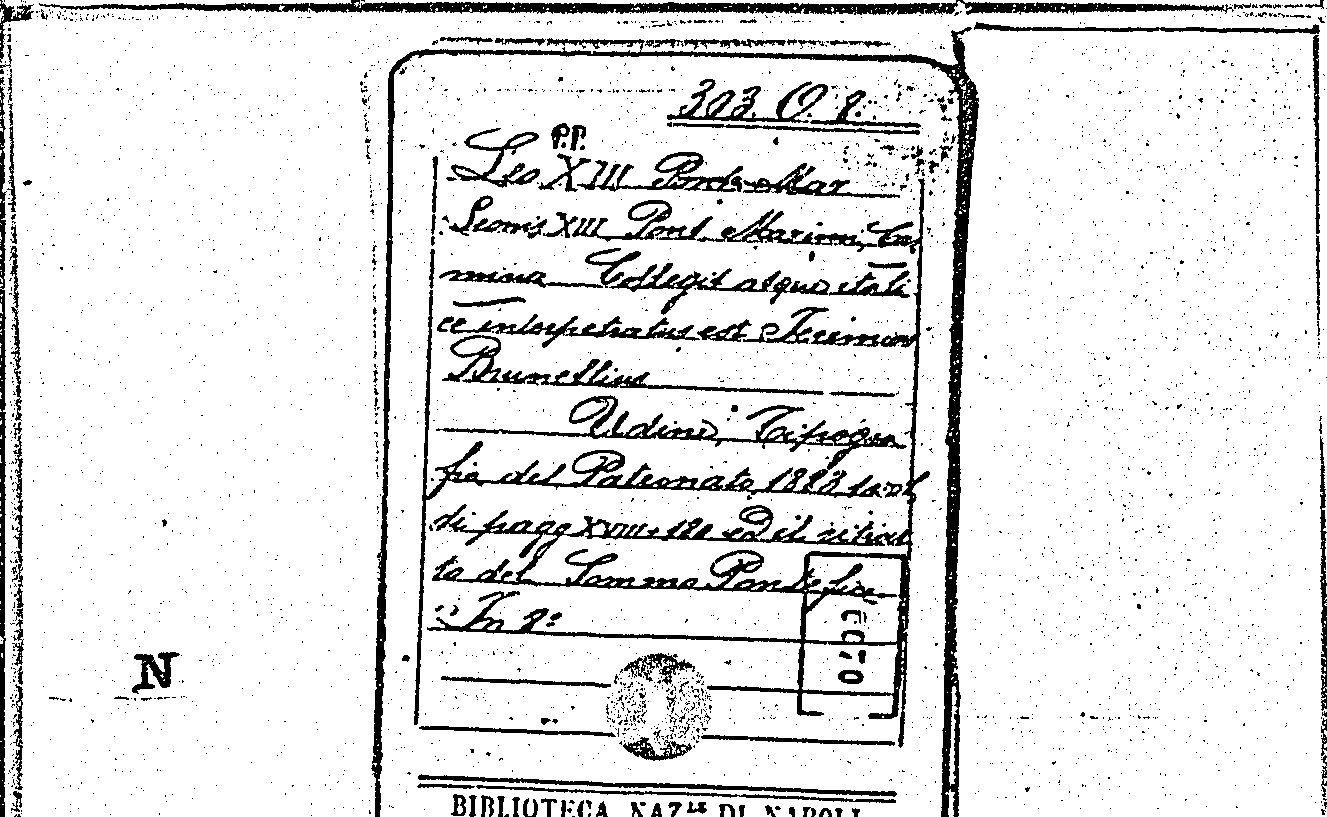 303. O. 8.
P.P.
Leo XIII Pont. Max
Leonis XIII Pont. Maximi, Car
mina Collegit atque itali
ce interpretatus est Jeremias
Brunellius
Udine, Tipogra
fia del Patronato 1883
di pagg XVIII + 120 ed il ritrat
to del Sommo Pontefice
In 8º
N
BIBLIOTECA NAZLE DI NAPOLI